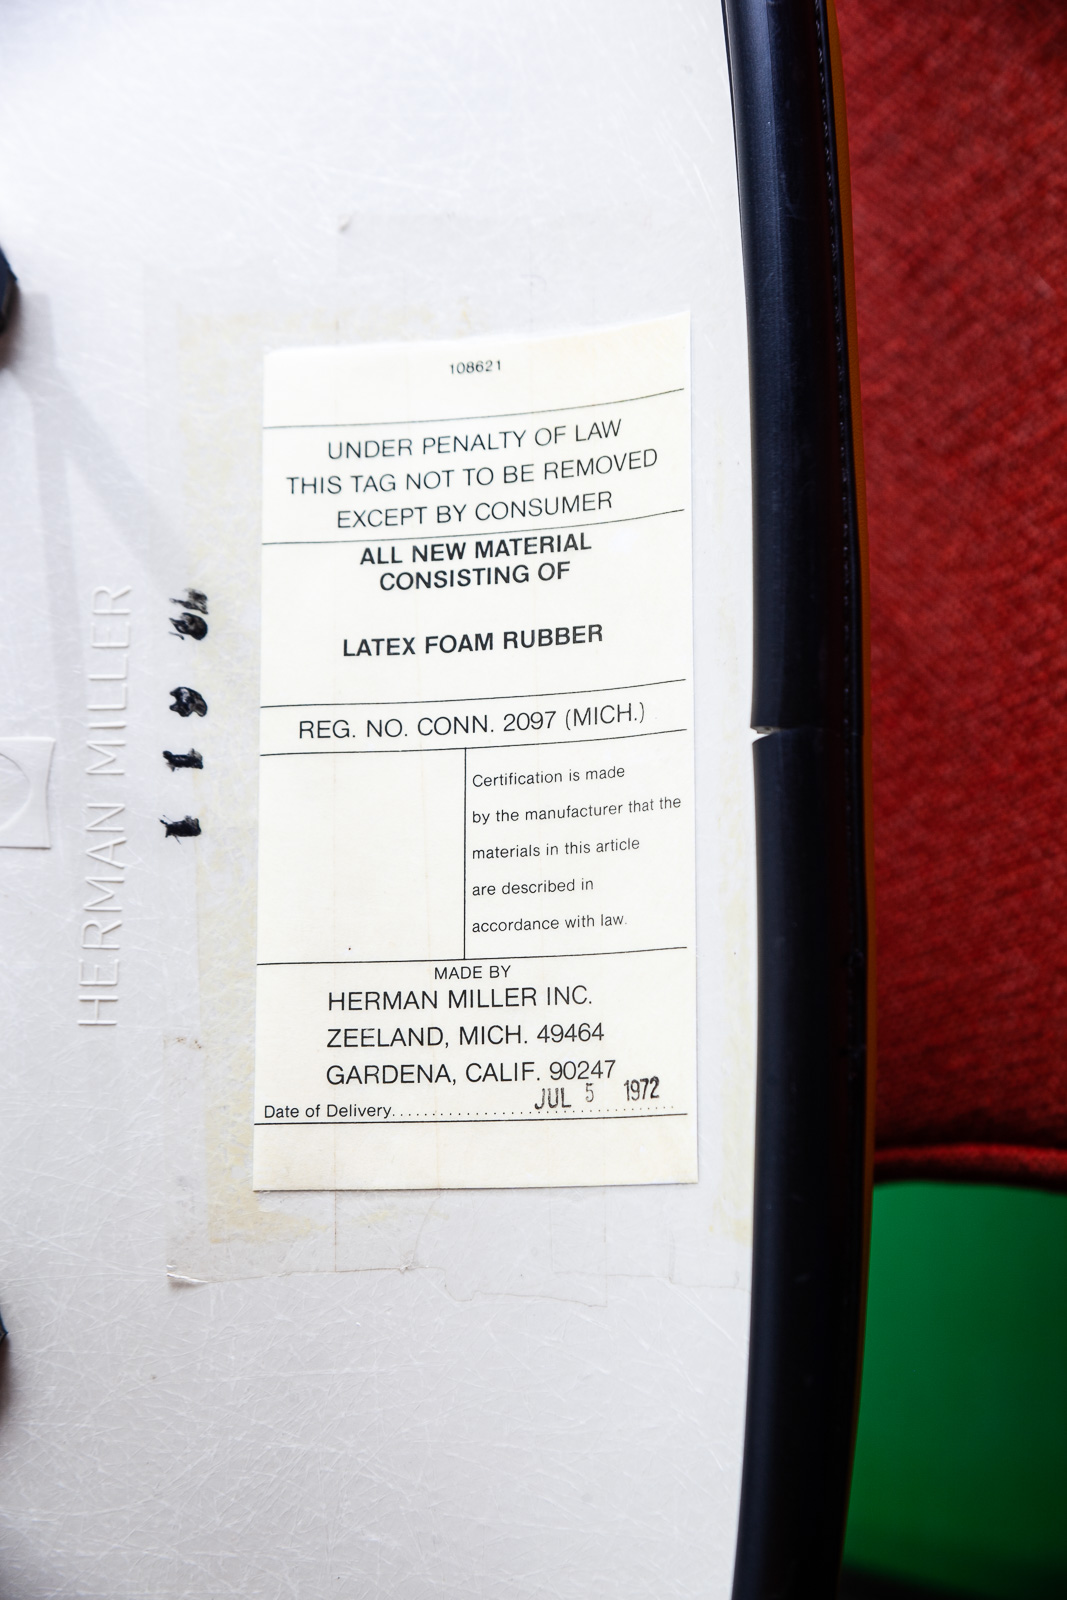 108621
UNDER PENALTY OF LAW
THIS TAG NOT TO BE REMOVED
EXCEPT BY CONSUMER
ALL NEW MATERIAL
CONSISTING OF
LATEX FOAM RUBBER
REG. NO. CONN. 2097 (MICH.)
Certification is made
by the manufacturer that the
materials in this article
are described in
accordance with law.
MADE BY
HERMAN MILLER INC.
ZEELAND, MICH. 49464
GARDENA, CALIF. 90247
Date of Delivery.......................... JUL 5 1972
HERMAN MILLER